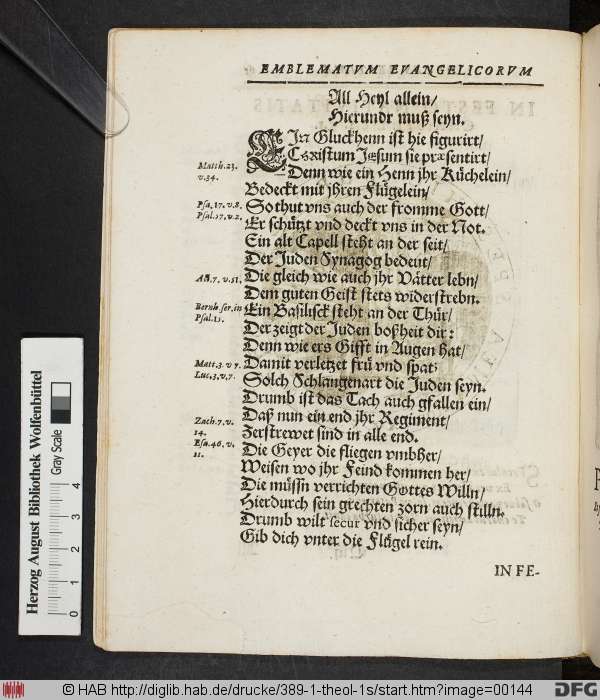 EMBLEMATVM EVANGELICORVM
All Heyl allein/
Hierundr muß seyn.
EJn Gluckhenn ist hie figurirt/
Christum Jesum sie præsentirt/
Matth. 23.
v. 34.
Denn wie ein Henn jhr Küchelein/
Bedeckt mit jhren Flügelein/
Psa. 17. v. 8.
So thut vns auch der fromme Gott/
Psal. 17. v. 2.
Er schützt vnd deckt vns in der Not.
Ein alt Capell steht an der seit/
Der Juden Synagog bedeut/
Act. 7. v. 51.
Die gleich wie auch jhr Vätter lebn/
Dem guten Geist stets widerstrebn.
Bernh. ser. in
Psal.
Ein Basilisck steht an der Thür/
Der zeigt der Juden boßheit dir:
Denn wie ers Gifft in Augen hat/
Matt. 3. v 7.
Damit verletzet frü vnd spat;
Luc. 3. v. 7.
Solch Schlangenart die Juden seyn.
Drumb ist das Tach auch gfallen ein/
Daß nun ein end jhr Regiment/
Zach. 7. v.
14.
Zerstrewet sind in alle end.
Esa. 46. v.
11.
Die Geyer die fliegen vmbher/
Weisen wo jhr Feind kommen her/
Die müssn verrichten Gottes Willn/
Hierdurch sein grechten zorn auch stilln.
Drumb wilt secur vnd sicher seyn/
Gib dich vnter die Flügel rein.
IN FE-
Herzog August Bibliothek Wolfenbüttel
Gray Scale
0 1 2 3 4
© HAB http://diglib.hab.de/drucke/389-1-theol-1s/start.htm?image=00144
DFG